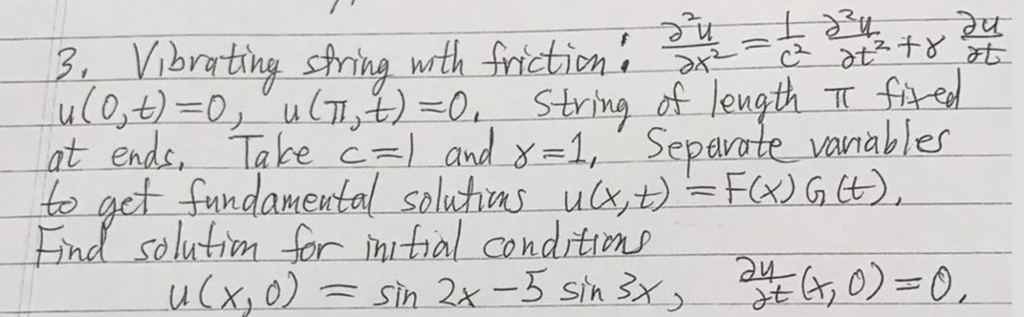 3. Vibrating string with friction: ∂²u/∂x² = 1/c² ∂²u/∂t² + γ ∂u/∂t
u(0,t)=0, u(π,t)=0. String of length π fixed
at ends. Take c=1 and γ=1. Separate variables
to get fundamental solutions u(x,t) = F(x) G(t).
Find solution for initial conditions
u(x,0) = sin 2x - 5 sin 3x, ∂u/∂t (x,0)=0.